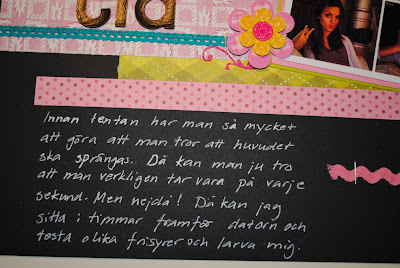 tid
Innan tentan har man så mycket
att göra att man tror att huvudet
ska sprängas. Då kan man ju tro
att man verkligen tar vara på varje
sekund. Men nejdå! Då kan jag
sitta i timmar framför datorn och
testa olika frisyrer och larva mig.